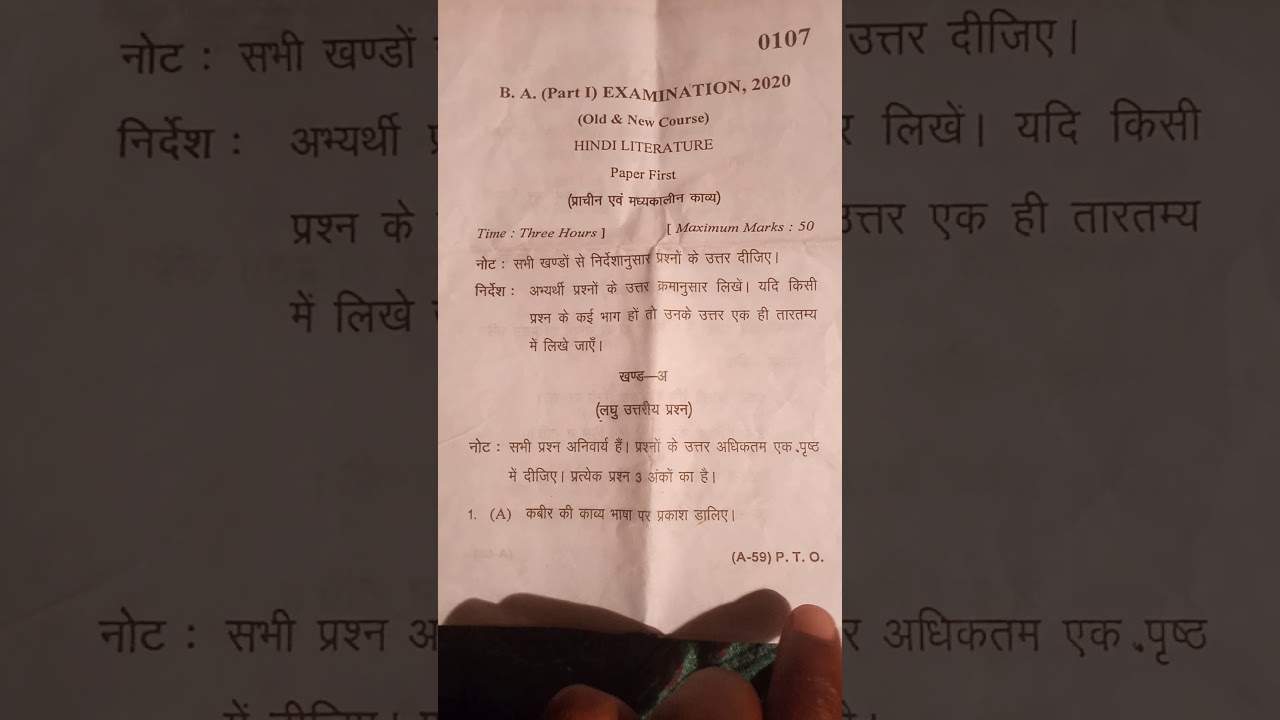 0107
B. A. (Part I) EXAMINATION, 2020
(Old & New Course)
HINDI LITERATURE
Paper First
(प्राचीन एवं मध्यकालीन काव्य)
Time : Three Hours ] [ Maximum Marks : 50
नोट : सभी खण्डों से निर्देशानुसार प्रश्नों के उत्तर दीजिए।
निर्देश : अभ्यर्थी प्रश्नों के उत्तर क्रमानुसार लिखें। यदि किसी
प्रश्न के कई भाग हों तो उनके उत्तर एक ही तारतम्य
में लिखे जाएँ।
खण्ड—अ
(लघु उत्तरीय प्रश्न)
नोट : सभी प्रश्न अनिवार्य हैं। प्रश्नों के उत्तर अधिकतम एक पृष्ठ
में दीजिए। प्रत्येक प्रश्न 3 अंकों का है।
1. (A) कबीर की काव्य भाषा पर प्रकाश डालिए।
(A-59) P. T. O.